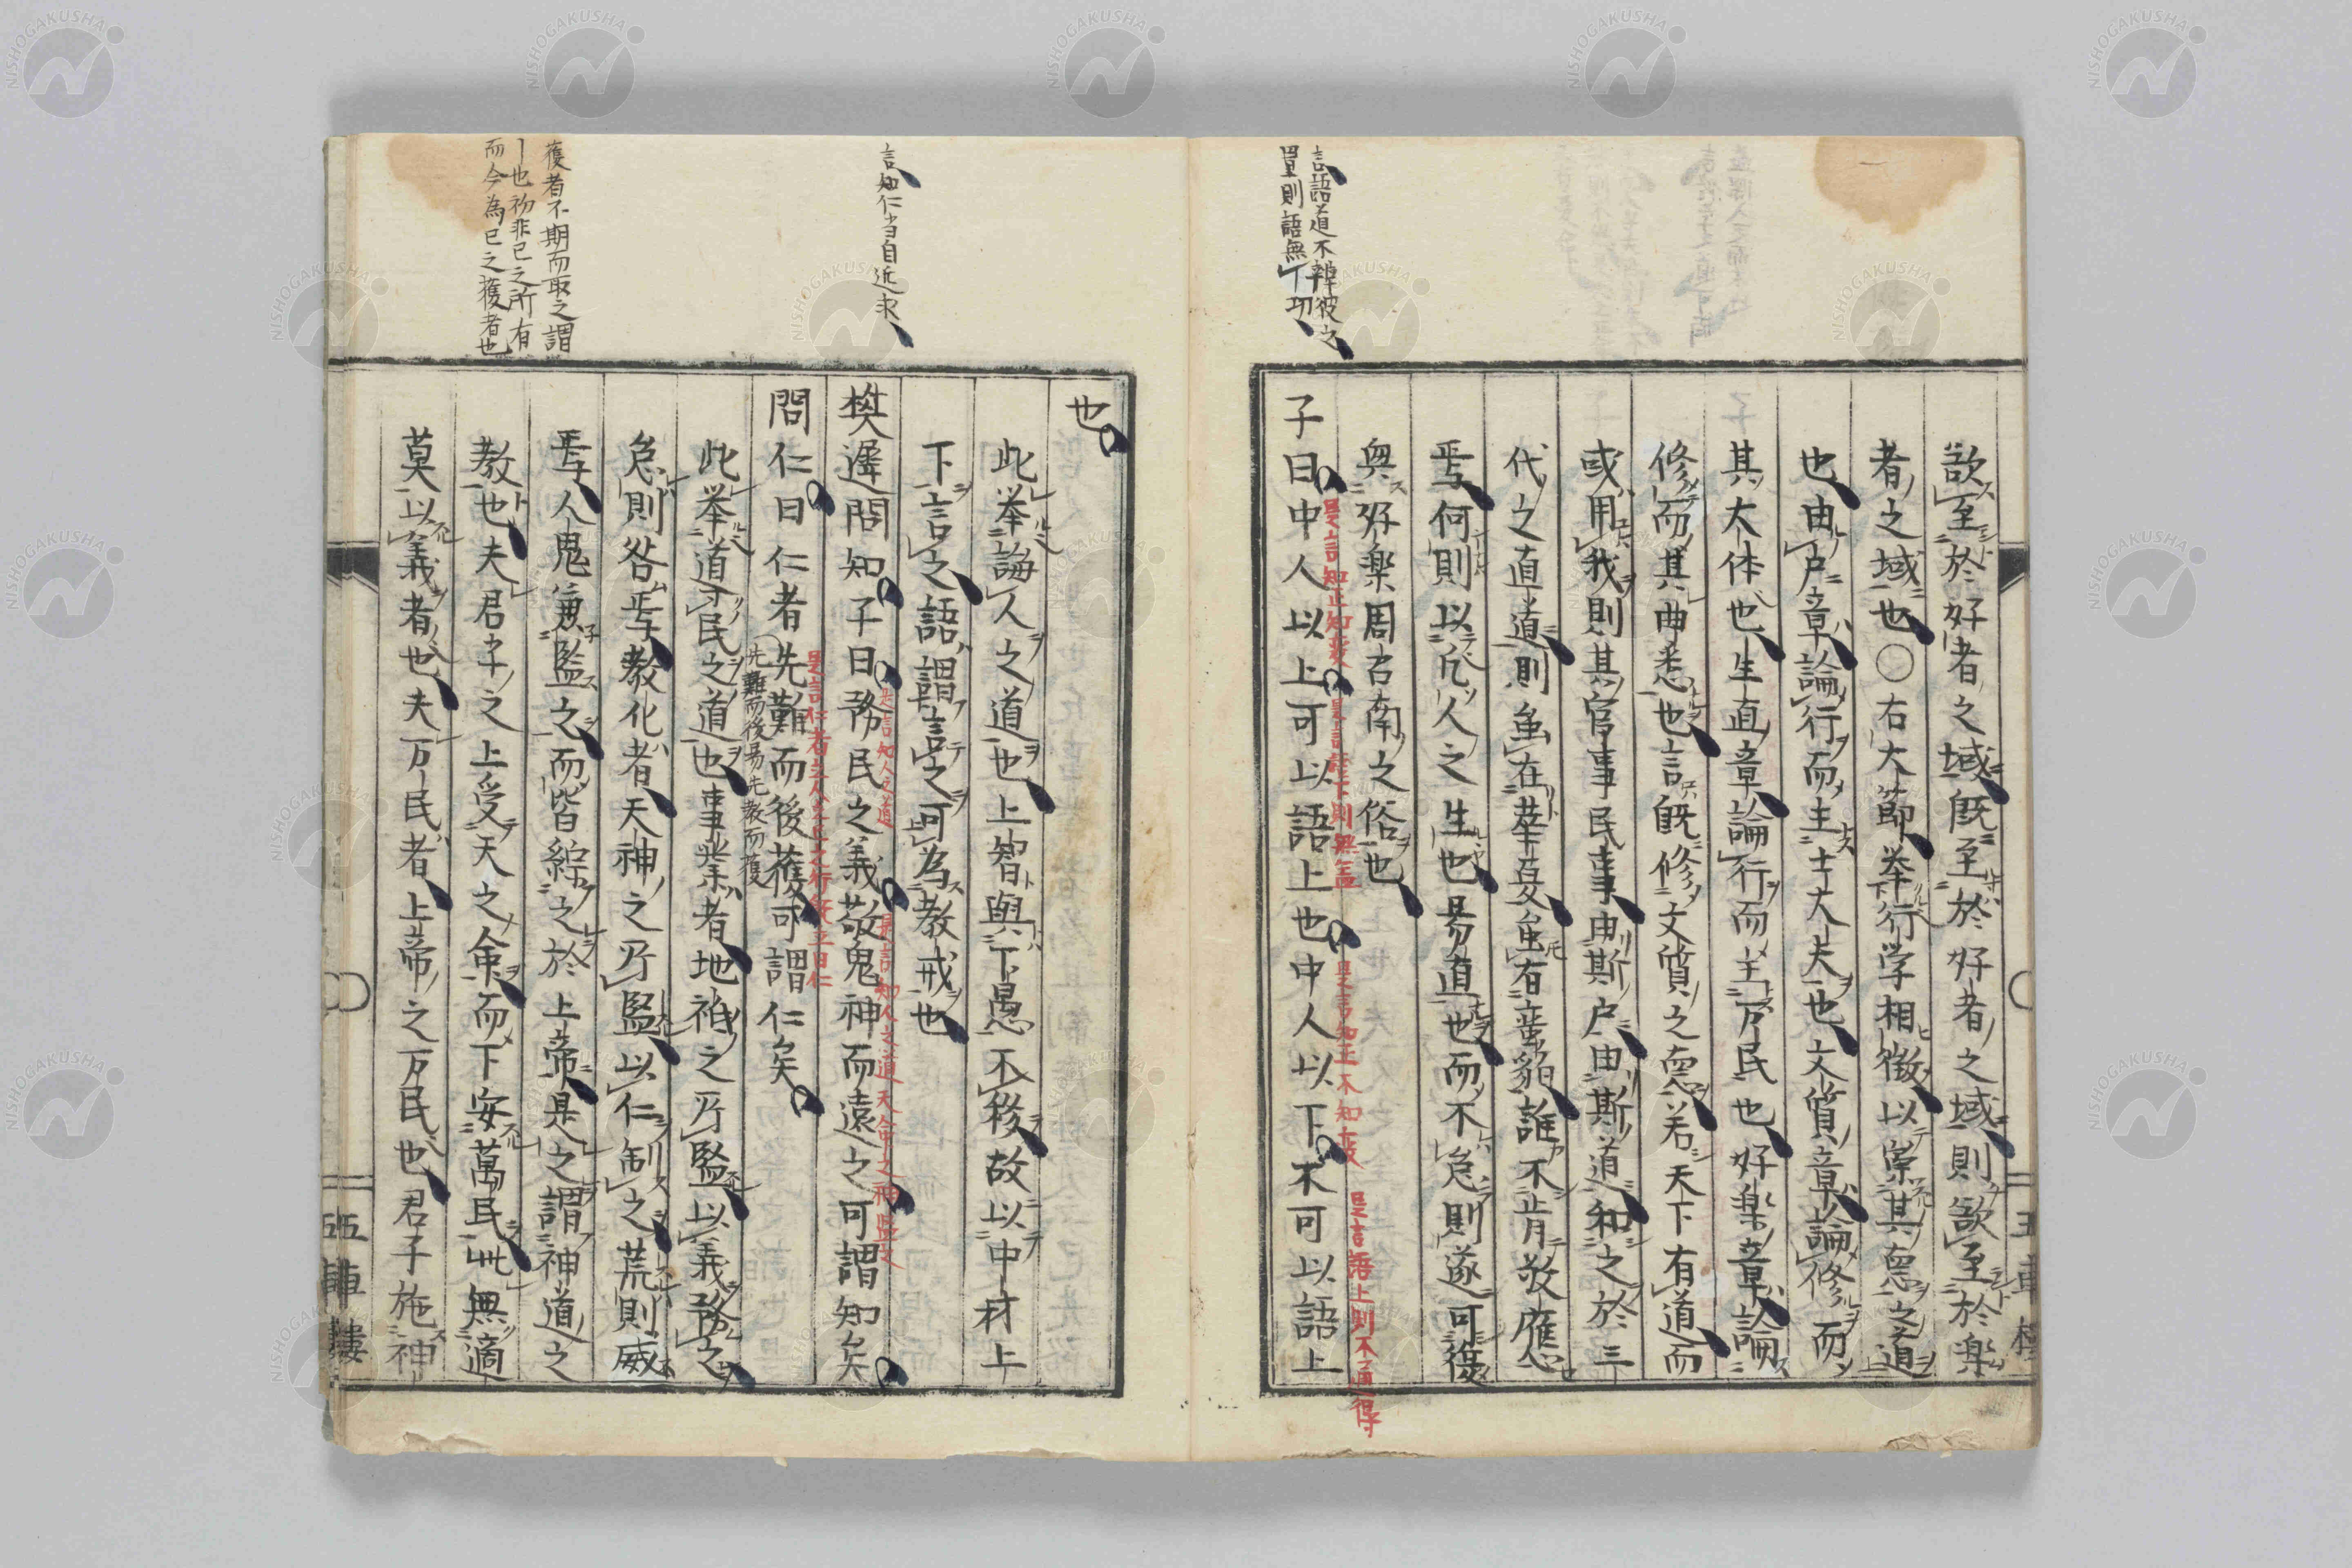 欲至於好者之域既至於好者之域則欲至於楽
者之域也〇右大節挙行学相徴以崇其悳之道
也由戸章論行而主士大夫也文質章論修而
其大体也生直章論行而主万民也好楽章論
修而其曲悉也言既修文質之悳若天下有道而
或用我則其官事民事由斯戸由斯道和之於三
代之直道則虽在莘妟虽有蛮貊誰不肯敬應
焉何則以凡人之生也易直也而不怠則遂可復
與好楽周召南之俗也
子曰中人以上可以語上也中人以下不可以語上
是言知正知変
是言語下則無益
是言知正不知変
是言語上則不通得
言語道不辨彼之
量則語無丁功
也
此挙誨人之道也上智與下愚不移故以中材上
下言之語謂言之可為教戒也
樊遲問知子曰務民之義敬鬼神而遠之可謂知矣
是言知人之道
是言知人之道天命之神監之
問仁曰仁者先難而後獲可謂仁矣
先難而後易先教而獲
此挙道民之道也事業者地祇之乃監以義務之
怠則咎焉教化者天神之乃監以仁制之荒則威
焉人鬼兼監之而皆綜之於上帝是之謂神道之
教也夫君子之上受天之命而下安萬民此無適
莫以義者也夫万民者上帝之万民也君子施神
言知仁当自近求
獲者不期而取之謂
丨也初非已之所有
而今為已之獲者也
五車樓